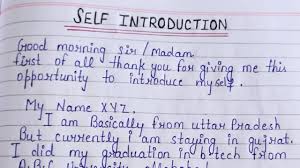 SELF INTRODUCTION
Good morning sir/madam
first of all thank you for giving me this
opportunity to introduce myself.
My Name XYZ.
I am Basically from uttar Pradesh
But currently i am staying in gujrat.
I did my graduation in b.tech from
A.B.C